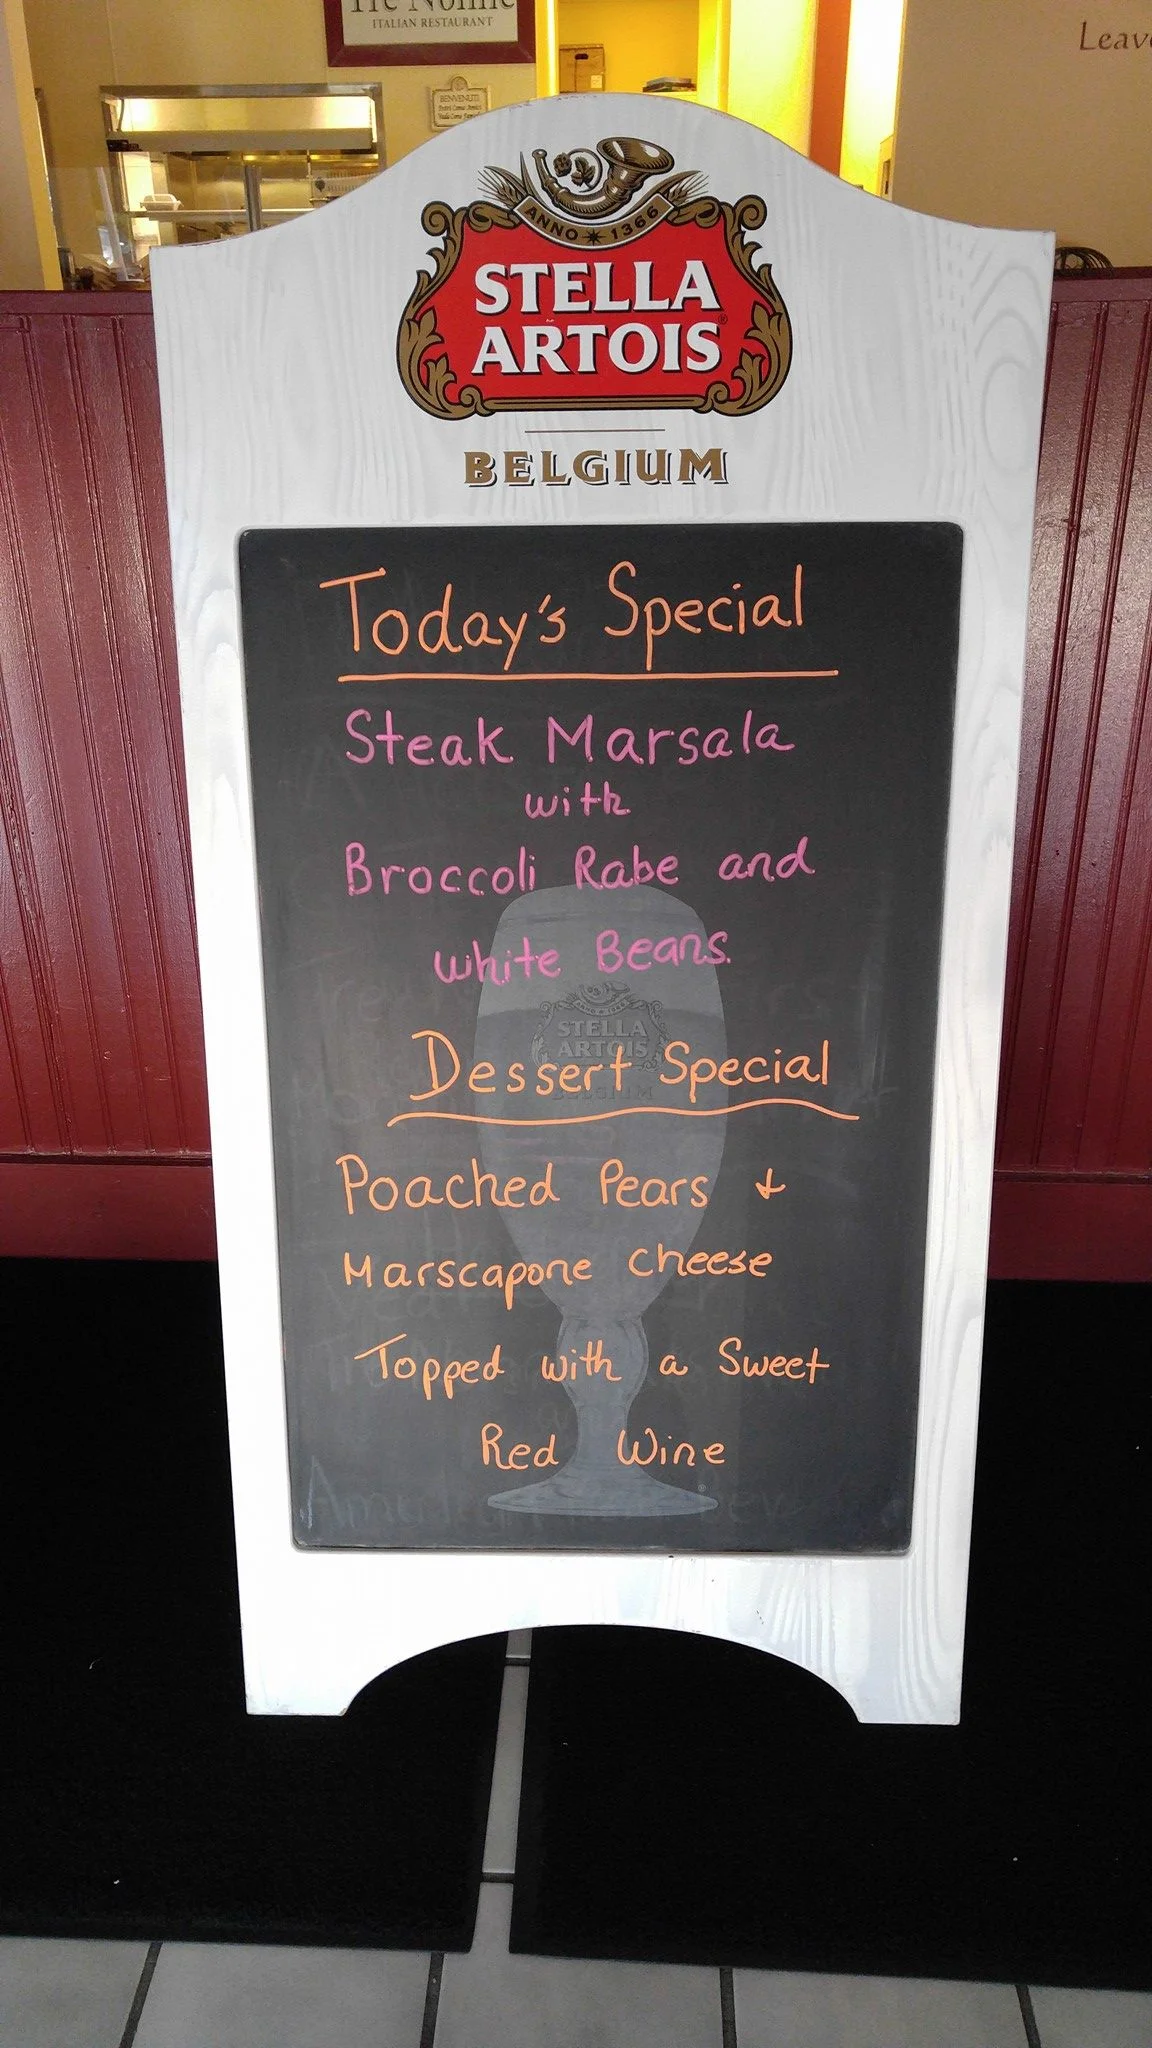 Tre Nonne
ITALIAN RESTAURANT
Leave
BENVENUTI
ANNO 1366
STELLA
ARTOIS
BELGIUM
Today's Special
Steak Marsala
with
Broccoli Rabe and
white Beans.
STELLA
ARTOIS
BELGIUM
Dessert Special
Poached Pears +
Marscapone cheese
Topped with a Sweet
Red Wine